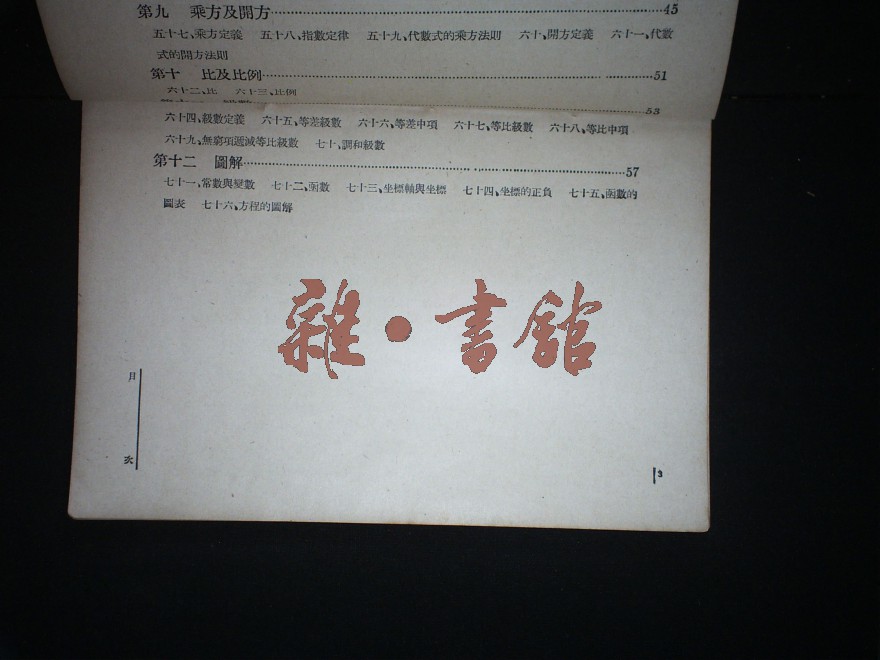 第九 乘方及開方……45
五十七、乘方定義 五十八、指數定律 五十九、代數式的乘方法則 六十、開方定義 六十一、代數
式的開方法則
第十 比及比例……51
六十二、比 六十三、比例
……53
六十四、級數定義 六十五、等差級數 六十六、等差中項 六十七、等比級數 六十八、等比中項
六十九、無窮項遞減等比級數 七十、調和級數
第十二 圖解……57
七十一、常數與變數 七十二、函數 七十三、坐標軸與坐標 七十四、坐標的正負 七十五、函數的
圖表 七十六、方程的圖解
雜·書館
目次
3